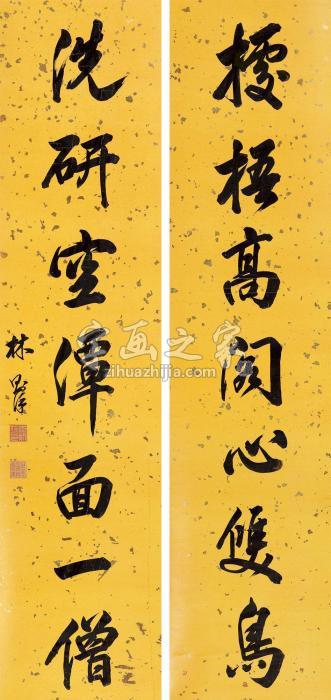 據梧高閣心雙鳥
洗研空潭面一僧
林
字画之家
zihuazhijia.com